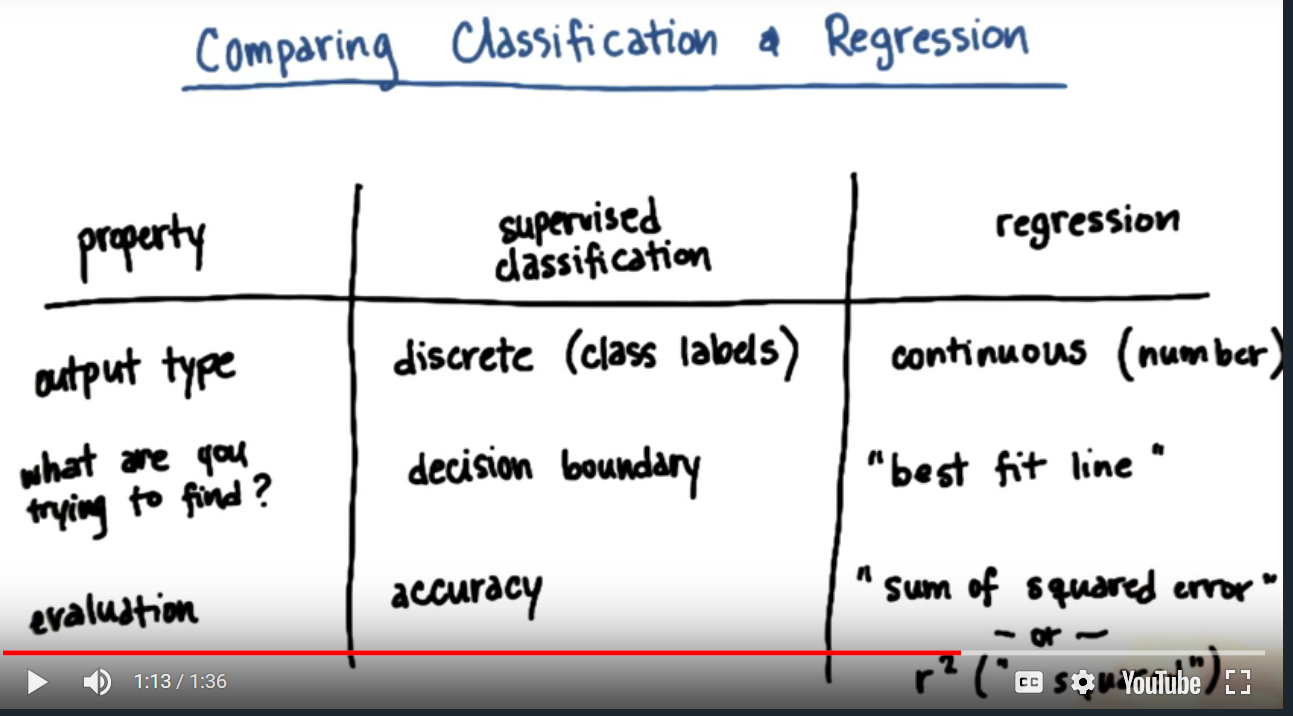 Comparing Classification & Regression
property
supervised
classification
regression
output type
discrete (class labels)
continuous (number)
what are you
trying to find?
decision boundary
"best fit line"
evaluation
accuracy
"sum of squared error"
- or -
r² ("
1:13 / 1:36
CC
YouTube